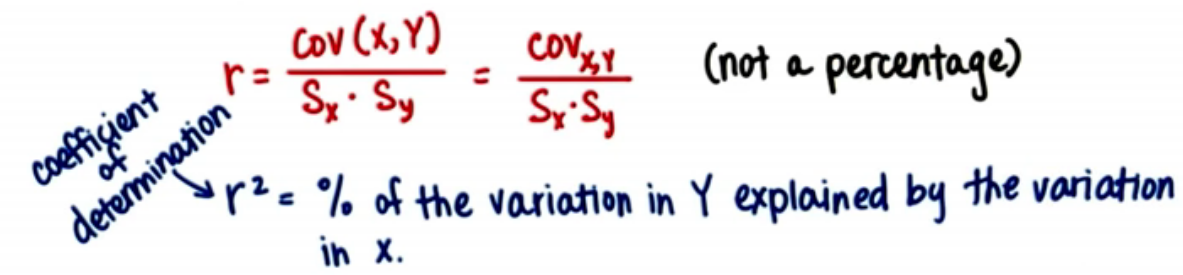 r = Cov(X,Y) / Sx · Sy = COVX,Y / Sx · Sy (not a percentage)
coefficient
of
determination
r² = % of the variation in Y explained by the variation
in x.